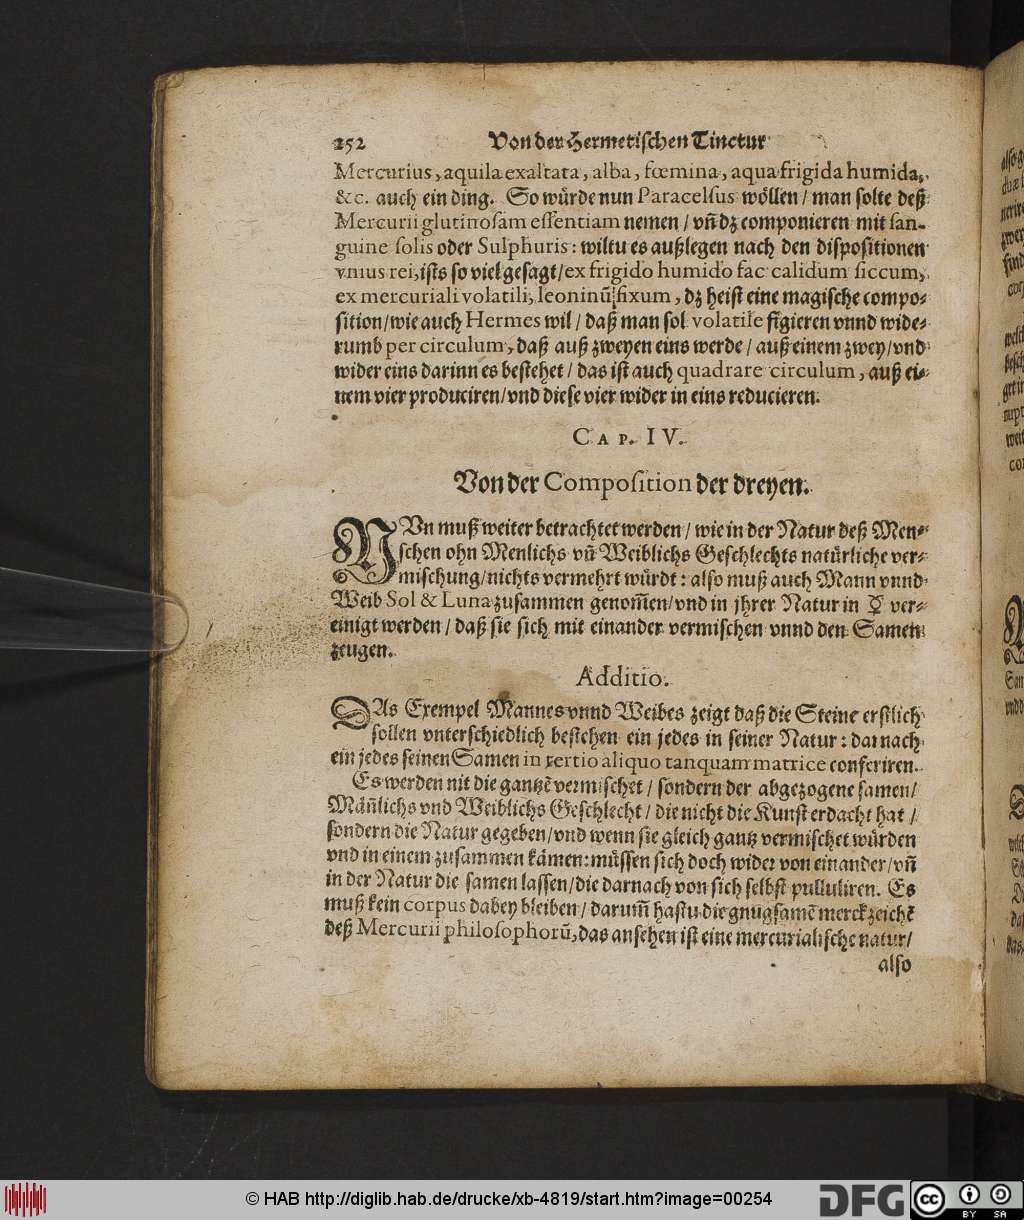 252 Von der Hermetischen Tinctur
Mercurius, aquila exaltata, alba, fœmina, aqua frigida humida,
&c. auch ein ding. So würde nun Paracelsus wöllen / man solte deß
Mercurii glutinosam essentiam nemen / vñ dz componieren mit san-
guine solis oder Sulphuris: wiltu es außlegen nach den dispositionen
vnius rei, ists so viel gesagt / ex frigido humido fac calidum siccum,
ex mercuriali volatili, leoninũ fixum, dz heist eine magische compo-
sition / wie auch Hermes wil / daß man sol volatile figieren vnnd wide-
rumb per circulum, daß auß zweyen eins werde / auß einem zwey / vnd
wider eins darinn es bestehet / das ist auch quadrare circulum, auß ei-
nem vier produciren / vnd diese vier wider in eins reducieren.
CAP. IV.
Von der Composition der dreyen.
NVn muß weiter betrachtet werden / wie in der Natur deß Men-
schen ohn Menlichs vñ Weiblichs Geschlechts natürliche ver-
mischung / nichts vermehrt würdt: also muß auch Mann vnnd
Weib Sol & Luna zusammen genom̃en / vnd in jhrer Natur in ☿ ver-
einigt werden / daß sie sich mit einander vermischen vnnd den Samen
zeugen.
Additio.
DAs Exempel Mannes vnnd Weibes zeigt daß die Steine erstlich
sollen vnterschiedlich bestehen ein jedes in seiner Natur: darnach
ein jedes seinen Samen in tertio aliquo tanquam matrice conferiren.
Es werden nit die gantzẽ vermischet / sondern der abgezogene samen /
Mäñlichs vnd Weiblichs Geschlecht / die nicht die Kunst erdacht hat /
sondern die Natur gegeben / vnd wenn sie gleich gantz vermischet würden
vnd in einem zusammen kämen: müssen sich doch wider von einander / vñ
in der Natur die samen lassen / die darnach von sich selbst pulluliren. Es
muß kein corpus dabey bleiben / darum̃ hastu die gnugsamẽ merckzeichẽ
deß Mercurii philosophorũ, das ansehen ist eine mercurialische natur /
also
© HAB http://diglib.hab.de/drucke/xb-4819/start.htm?image=00254
DFG
cc BY SA